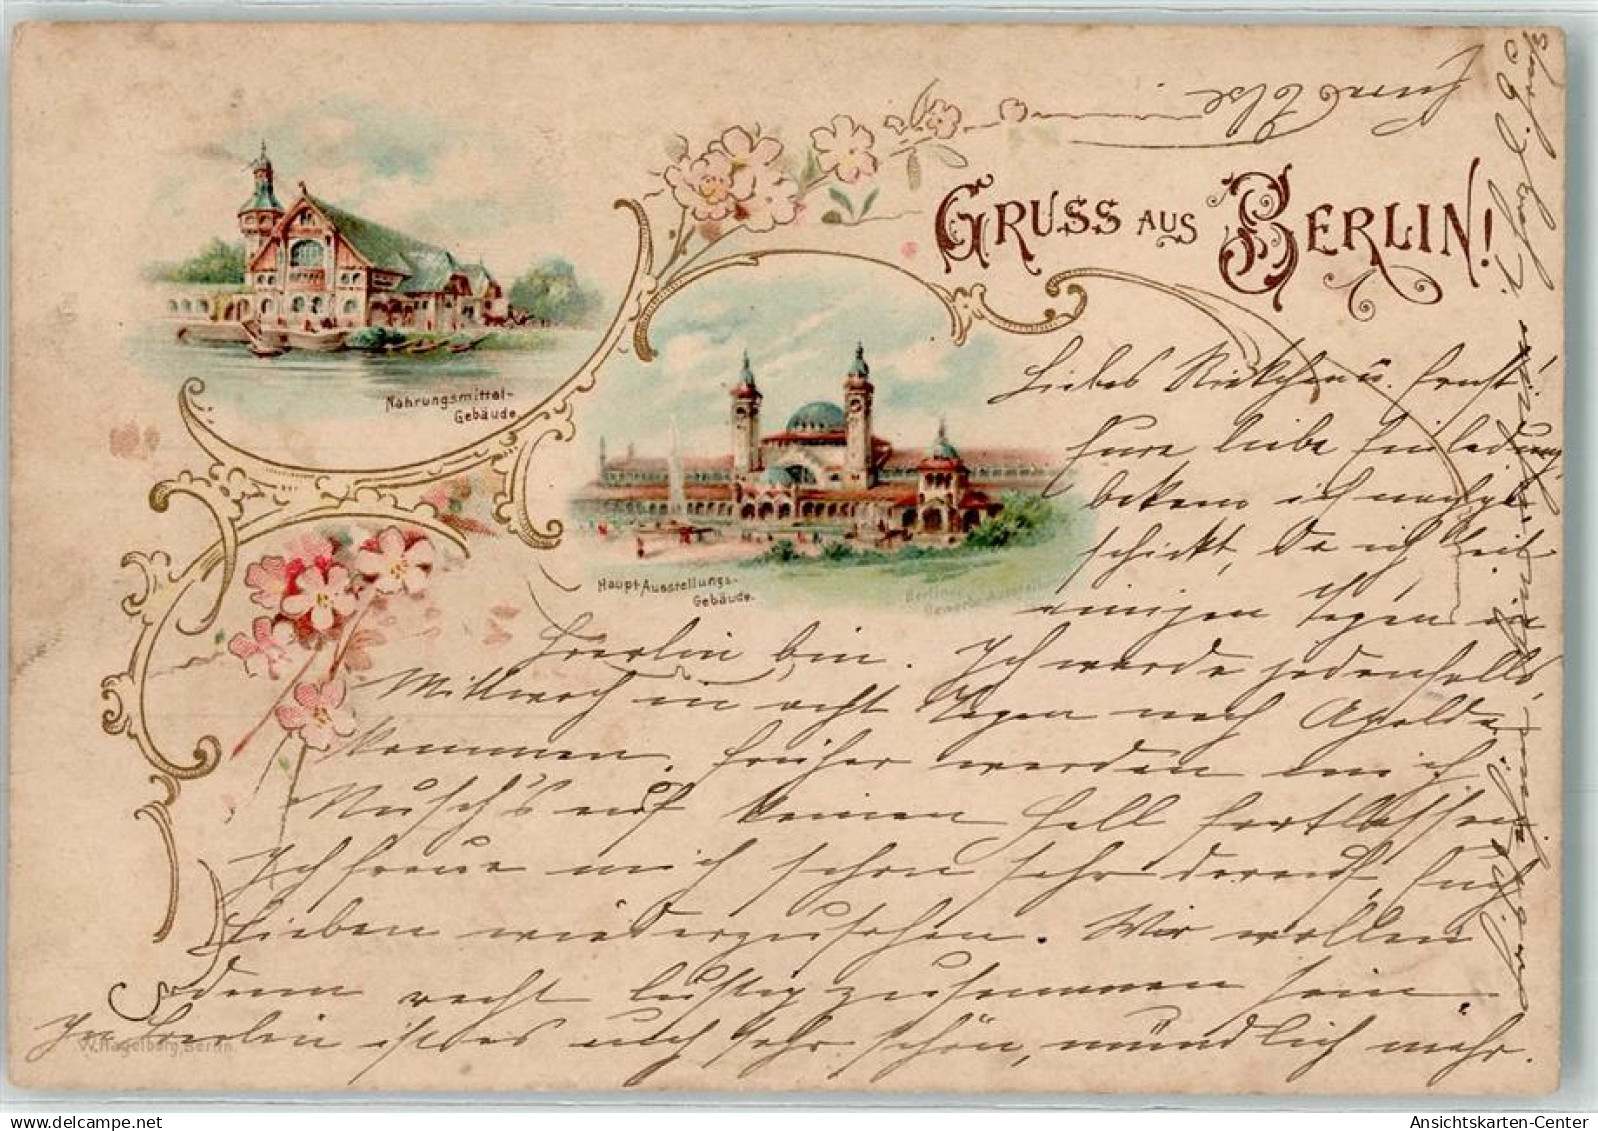 GRUSS AUS BERLIN!
Nahrungsmittel-
Gebäude.
Haupt-Ausstellungs-
Gebäude.
Berliner
Gewerbe-Ausstell
Liebes u. Ernst!
Eure liebe Einladung
bekam ich
schickt, da ich seit
einigen Tagen in
Berlin bin. Ich werde jedenfalls
Mittwoch in acht Tagen nach Apolda
kommen, früher werden mich
auf keinen Fall fortlassen.
Ich freue mich schon sehr darauf, Euch
Lieben wiederzusehen. Wir wollen
dann recht lustig zusammen sein.
In Berlin ist es auch sehr schön, mündlich mehr.
Eure Else
W. Hagelberg, Berlin.
Ansichtskarten-Center